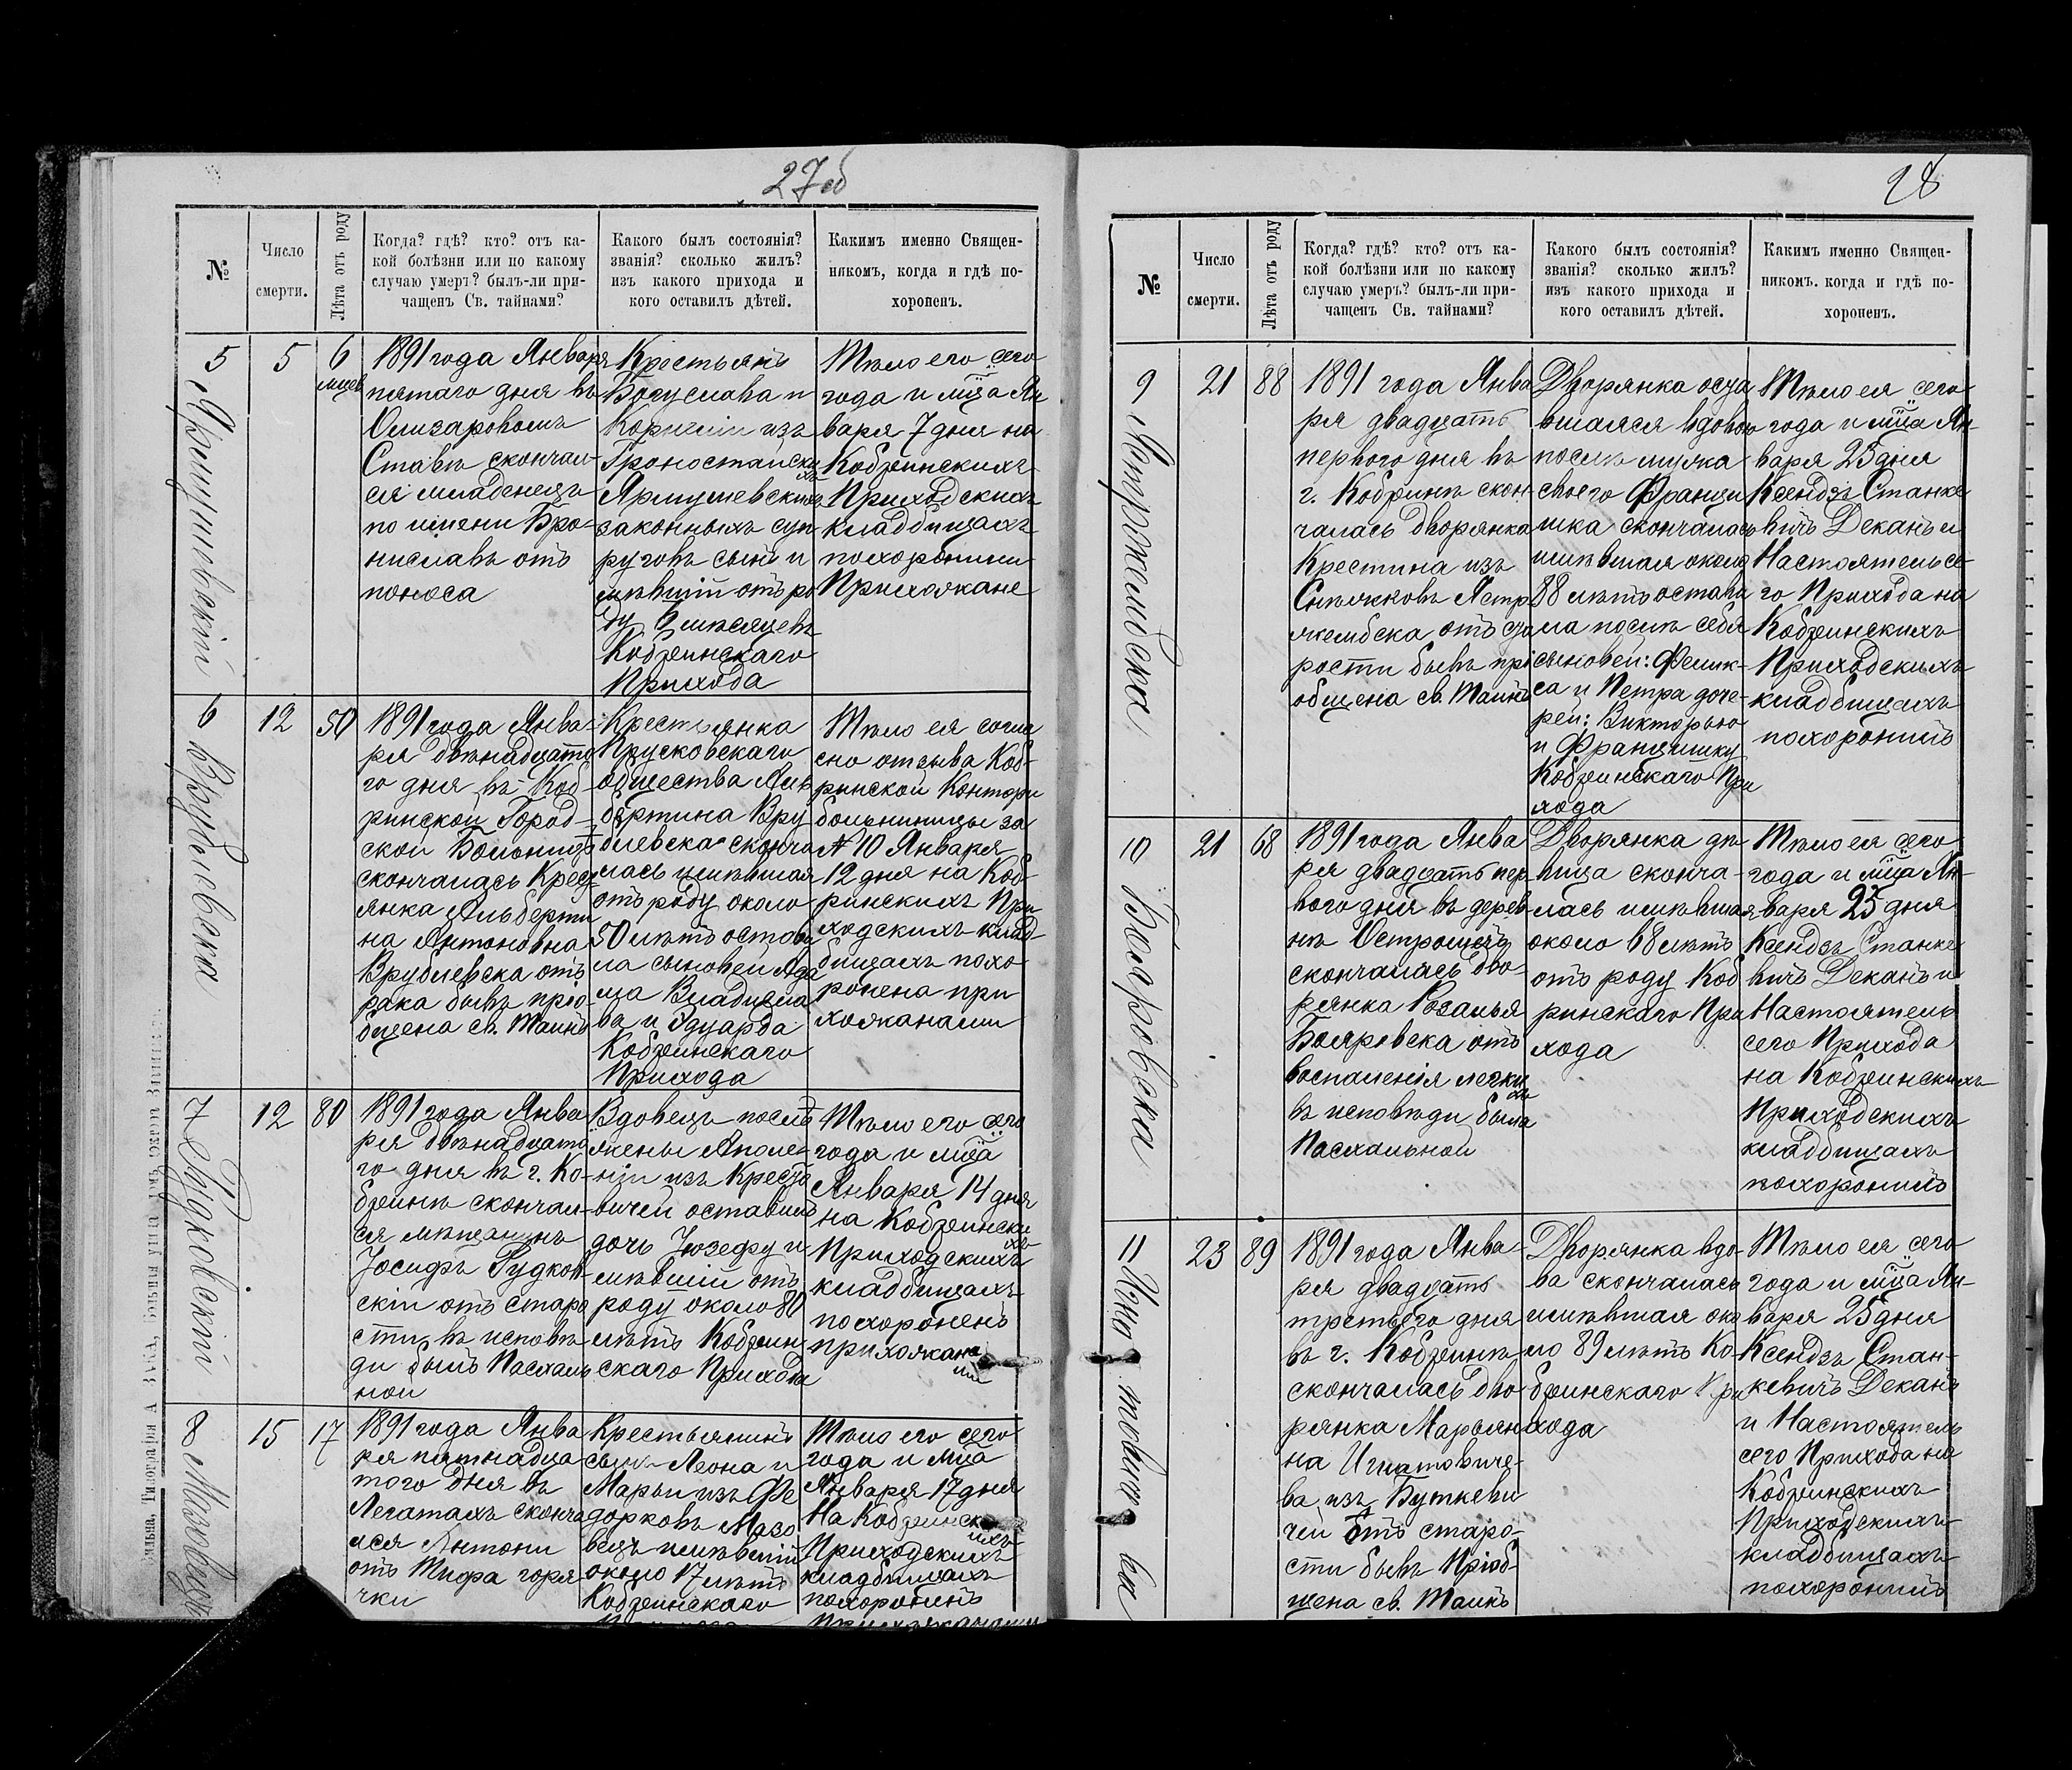 27об
№
Число
смерти.
Лѣта отъ роду
Когда? гдѣ? кто? отъ ка-
кой болѣзни или по какому
случаю умеръ? былъ-ли при-
чащенъ Св. тайнами?
Какого былъ состоянія?
званія? сколько жилъ?
изъ какого прихода и
кого оставилъ дѣтей.
Какимъ именно Священ-
никомъ, когда и гдѣ по-
хороненъ.
5
Ярмушевский
5
6
мцев
1891 года Января
пятаго дня въ
Олизаровомъ
Ставѣ скончал-
ся младенецъ
по имени Бро-
ниславъ отъ
поноса
Крестьянъ
Богуслава и
изъ
Гроностайски
хъ
Ярмушевскихъ
законныхъ суп
руговъ сынъ и
мѣвшій отъ ро
ду 6 мѣсяцевъ
Кобринскаго
Прихода
Тѣло его сего
года и мца Ян
варя 7 дня на
Кобринскихъ
Приходскихъ
кладбищахъ
похоронили
Прихожане
6
Врублевска
12
50
1891 года Янва-
ря двѣнадцато
го дня въ Коб-
ринской Город-
ской Больницѣ
скончалась Крест
янка Альберти
на Антоновна
Врублевска отъ
рака бывъ прiо
бщена св. Таинъ
Крестьянка
Прусковскаго
общества Аль
бертина Вру
блевска сконча
лась имѣвшая
отъ роду около
50 лѣтъ остави
ла сыновей Ада
ма Владисла
ва и Эдуарда
Кобринскаго
Прихода
Тѣло ея согла
сно отзыва Коб-
ринской Конторы
больницы за
№ 10 Января
12 дня на Коб-
ринскихъ При
ходскихъ клад-
бищахъ похо
ронена при
хожанами
7
Рудковский
12
80
1891 года Янва
ря двѣнадцато
го дня въ г. Ко-
бринѣ скончал-
ся мѣщанинъ
Іосифъ Рудков
скій отъ старо
сти, въ исповѣ
ди былъ Пасхаль
ной
Вдовецъ послѣ
жены Аполо-
ніи изъ
вичей оставилъ
дочь Юзефу и
мѣвшій отъ
роду около 80
лѣтъ Кобрин
скаго Прихода
Тѣло его сего
года и мца
Января 14 дня
на Кобрински
хъ
Приходскихъ
кладбищахъ
похороненъ
прихожана
ми
8
Мазовец
15
17
1891 года Янва
ря пятнадца
того дня въ
Легатахъ сконча
лся Антони
отъ Тифа горя
чки
Крестьянинъ
сынъ Леона и
Марьи изъ Фе
дорковъ Мазо
вецъ имѣвшій
около 17 лѣтъ
Кобринскаго
Тѣло его сего
года и мца
Января 17 дня
На Кобринск
ихъ
Приходскихъ
кладбищахъ
похоронилъ
28
№
Число
смерти.
Лѣта отъ роду
Когда? гдѣ? кто? отъ ка-
кой болѣзни или по какому
случаю умеръ? былъ-ли при-
чащенъ Св. тайнами?
Какого былъ состоянія?
званія? сколько жилъ?
изъ какого прихода и
кого оставилъ дѣтей.
Какимъ именно Священ-
никомъ. когда и гдѣ по-
хороненъ.
9
Ястржембска
21
88
1891 года Янва
ря двадцать
перваго дня въ
г. Кобринѣ скон-
чалась дворянка
Крестина изъ
Снѣжковъ Ястр
жембска отъ ста
рости бывъ прi
общена св. Таинъ
Дворянка оста
вшаяся вдовою
послѣ мужа
своего Франци
шка скончалась
имѣвшая около
88 лѣтъ остави
ла послѣ себя
сыновей: Фелик-
са и Петра доче-
рей: Викторью
и Францишку
Кобринскаго При
хода
Тѣло ея сего
года и мца Ян-
варя 25 дня
Ксендзъ Станке
вичъ Деканъ и
Настоятель се-
го Прихода на
Кобринскихъ
Приходскихъ
кладбищахъ
похоронилъ
10
Бояровска
21
68
1891 года Янва
ря двадцать пер
ваго дня въ дерев-
нѣ
скончалась дво-
рянка Розалья
Бояровска отъ
воспаленія легки
хъ
въ исповѣди была
Пасхальной
Дворянка дѣ
вица сконча-
лась имѣвшая
около 68 лѣтъ
отъ роду Коб
ринскаго При
хода
Тѣло ея сего
года и мца Ян-
варя 25 дня
Ксендзъ Станке
вичъ Деканъ и
Настоятель
сего Прихода
на Кобринскихъ
Приходскихъ
кладбищахъ
похоронилъ
11
23
89
1891 года Янва-
ря двадцать
третьего дня
въ г. Кобринѣ
скончалась дво
рянка Марьян
на Игнатовиче-
ва изъ Буткеви
чей отъ старо-
сти бывъ Прiоб-
щена св. Таинъ
Дворянка вдо-
ва скончалась
имѣвшая око
ло 89 лѣтъ Ко-
бринскаго При
хода
Тѣло ея сего
года и мца Ян-
варя 25 дня
Ксендзъ Стан-
кевичъ Деканъ
и Настоятель
сего Прихода на
Кобринскихъ
Приходскихъ
кладбищахъ
похоронилъ